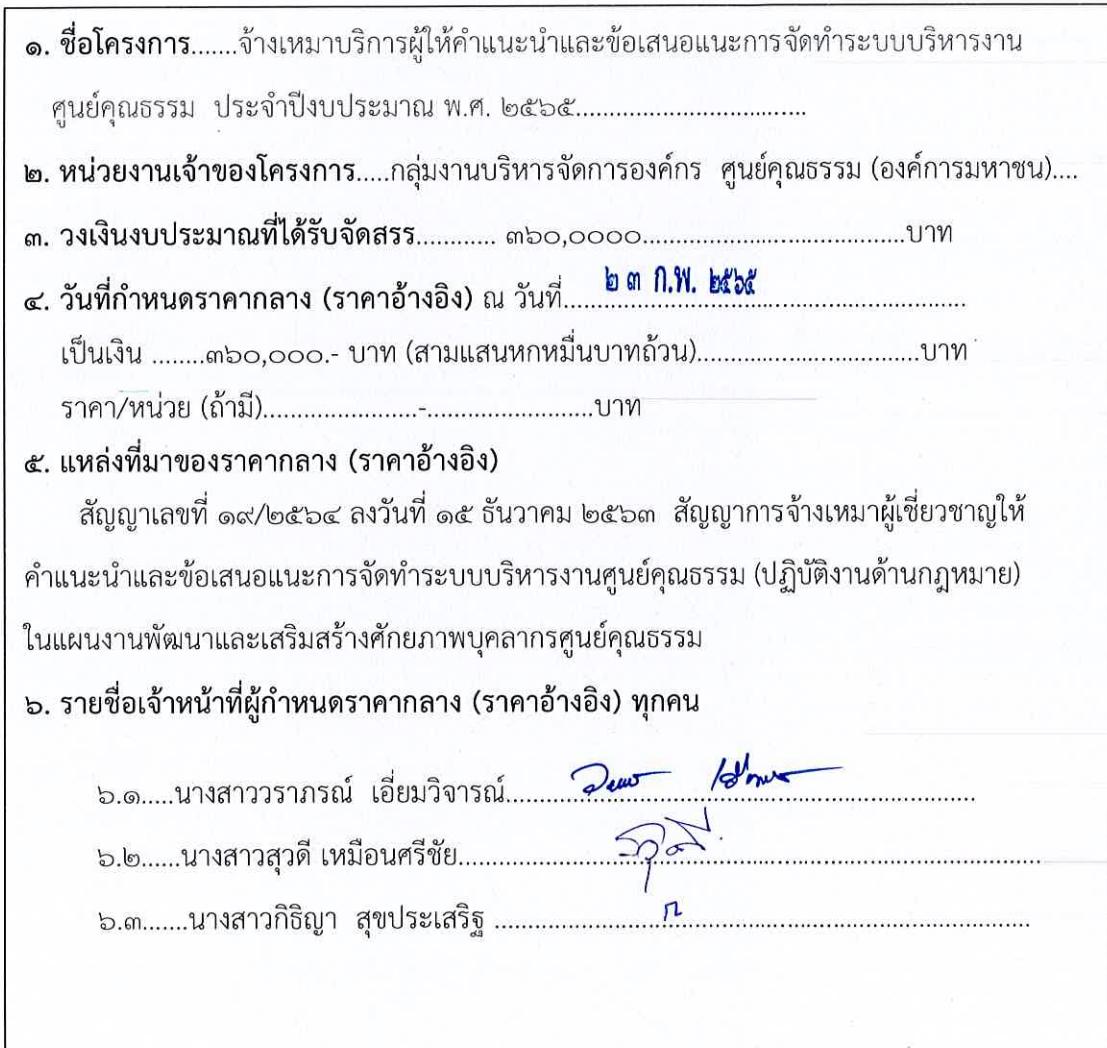 ๑. ชื่อโครงการ.......จ้างเหมาบริการผู้ให้คำแนะนำและข้อเสนอแนะการจัดทำระบบบริหารงาน
ศูนย์คุณธรรม ประจำปีงบประมาณ พ.ศ. ๒๕๖๕................................
๒. หน่วยงานเจ้าของโครงการ.....กลุ่มงานบริหารจัดการองค์กร ศูนย์คุณธรรม (องค์การมหาชน)....
๓. วงเงินงบประมาณที่ได้รับจัดสรร............ ๓๖๐,๐๐๐๐.....................................บาท
๔. วันที่กำหนดราคากลาง (ราคาอ้างอิง) ณ วันที่......๒๓ ก.พ. ๒๕๖๕......................
เป็นเงิน ........๓๖๐,๐๐๐.- บาท (สามแสนหกหมื่นบาทถ้วน)................................บาท
ราคา/หน่วย (ถ้ามี)......................-........................บาท
๕. แหล่งที่มาของราคากลาง (ราคาอ้างอิง)
สัญญาเลขที่ ๑๙/๒๕๖๔ ลงวันที่ ๑๕ ธันวาคม ๒๕๖๓ สัญญาการจ้างเหมาผู้เชี่ยวชาญให้
คำแนะนำและข้อเสนอแนะการจัดทำระบบบริหารงานศูนย์คุณธรรม (ปฏิบัติงานด้านกฎหมาย)
ในแผนงานพัฒนาและเสริมสร้างศักยภาพบุคลากรศูนย์คุณธรรม
๖. รายชื่อเจ้าหน้าที่ผู้กำหนดราคากลาง (ราคาอ้างอิง) ทุกคน
๖.๑.....นางสาววราภรณ์ เอี่ยมวิจารณ์......................................................
๖.๒......นางสาวสุวดี เหมือนศรีชัย..........................................................
๖.๓.......นางสาวกิธิญา สุขประเสริฐ ......................................................